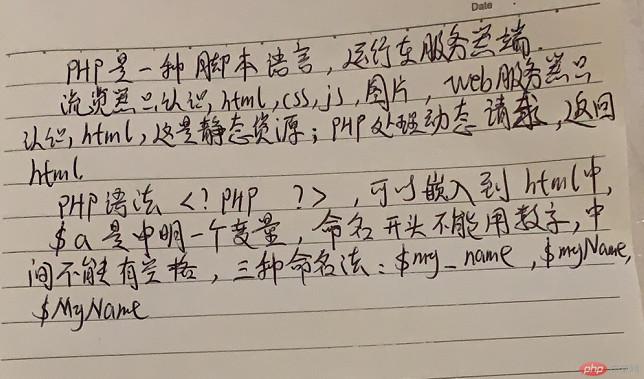 Date
PHP是一种脚本语言，运行在服务器端.
浏览器只认识,html,css,js,图片，Web服务器只
认识,html,这是静态资源；PHP处理动态请求,返回
html
PHP语法 <?PHP ?>，可以嵌入到html中,
$a是申明一个变量，命名开头不能用数字,中
间不能有空格，三种命名法：$my_name,$myName,
$MyName
php